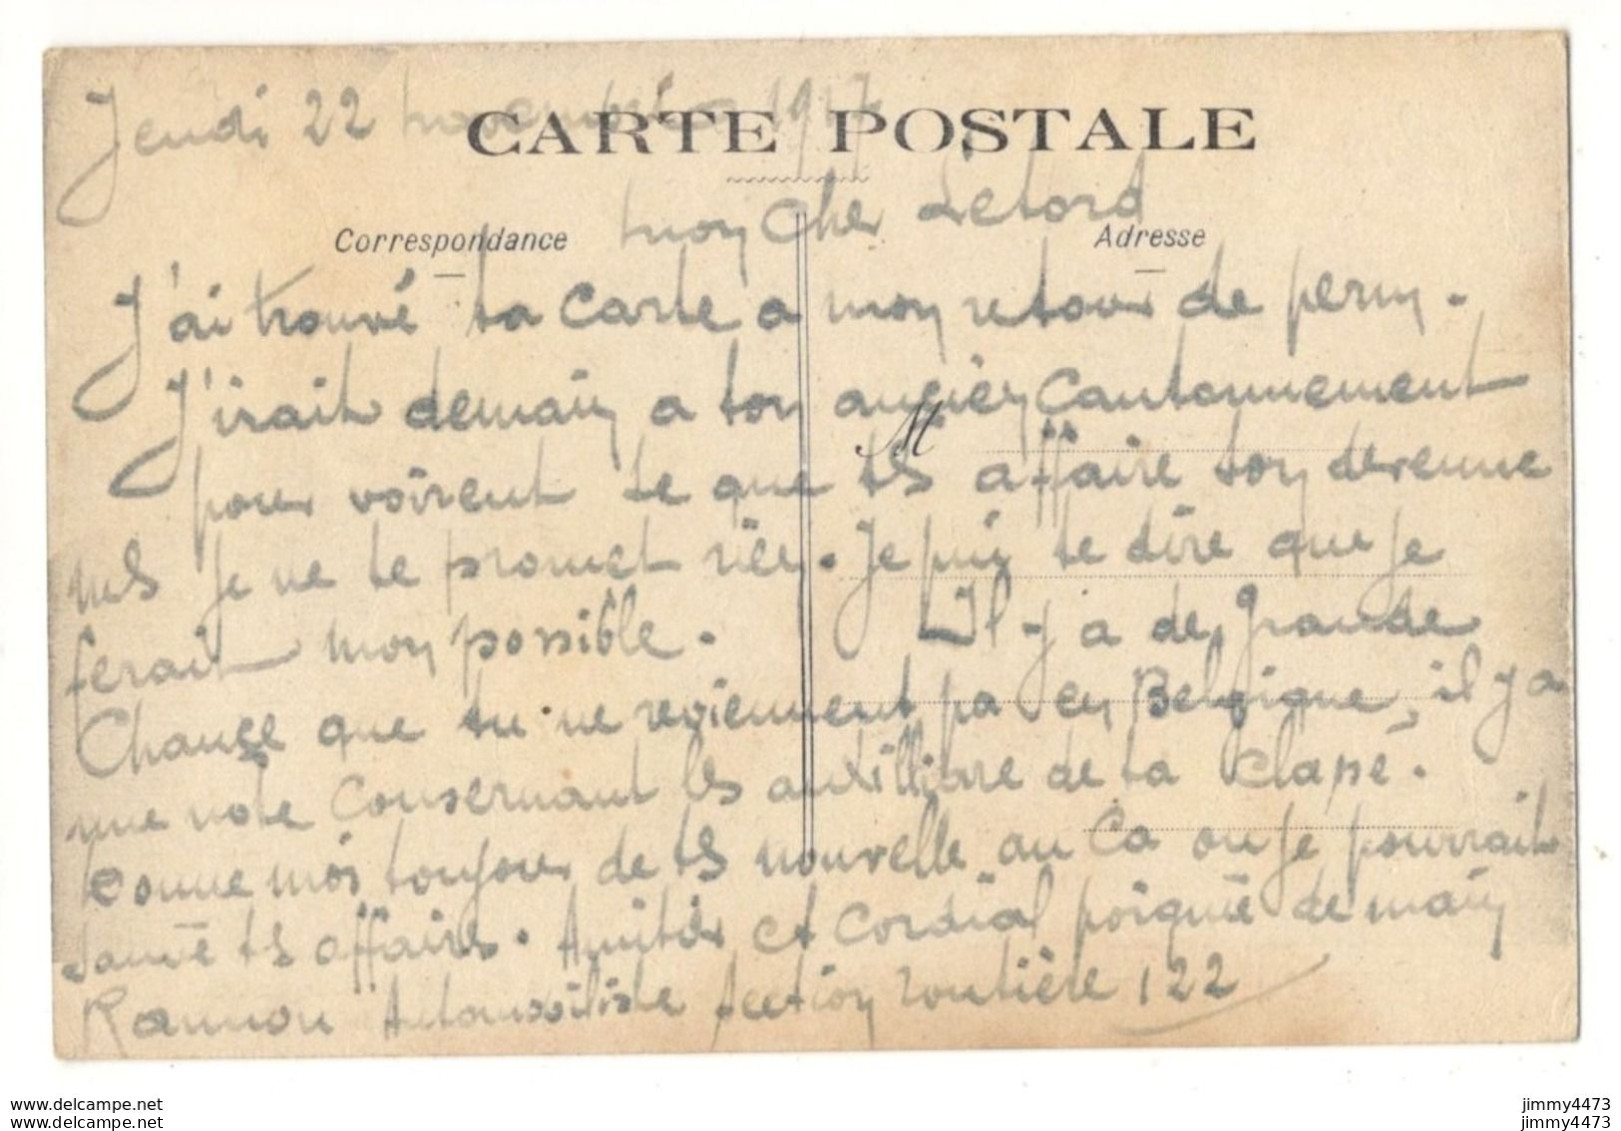 Jeudi 22 novembre 1917
CARTE POSTALE
mon Cher Letord
Correspondance
Adresse
J'ai trouvé ta Carte a mon retour de perm.
J'irait demain a ton ancien Cantonnement
M
pour voirent se que tes affaire son devenue
mes je ne te promet rien. Je puis te dire que je
ferait mon possible. Il y a de grande
Chance que tu ne reviennent pa en Belgique, il y a
une note Consernant les auxillière de ta Clase.
Donne mois toujour de tes nouvelle au Ca ou je pourrait
sauvé tes affaires. Amitiés et Cordial poignée de main
Rannou Automobiliste section routière 122
delcampe.net
delcampe.net
jimmy4473
jimmy4473